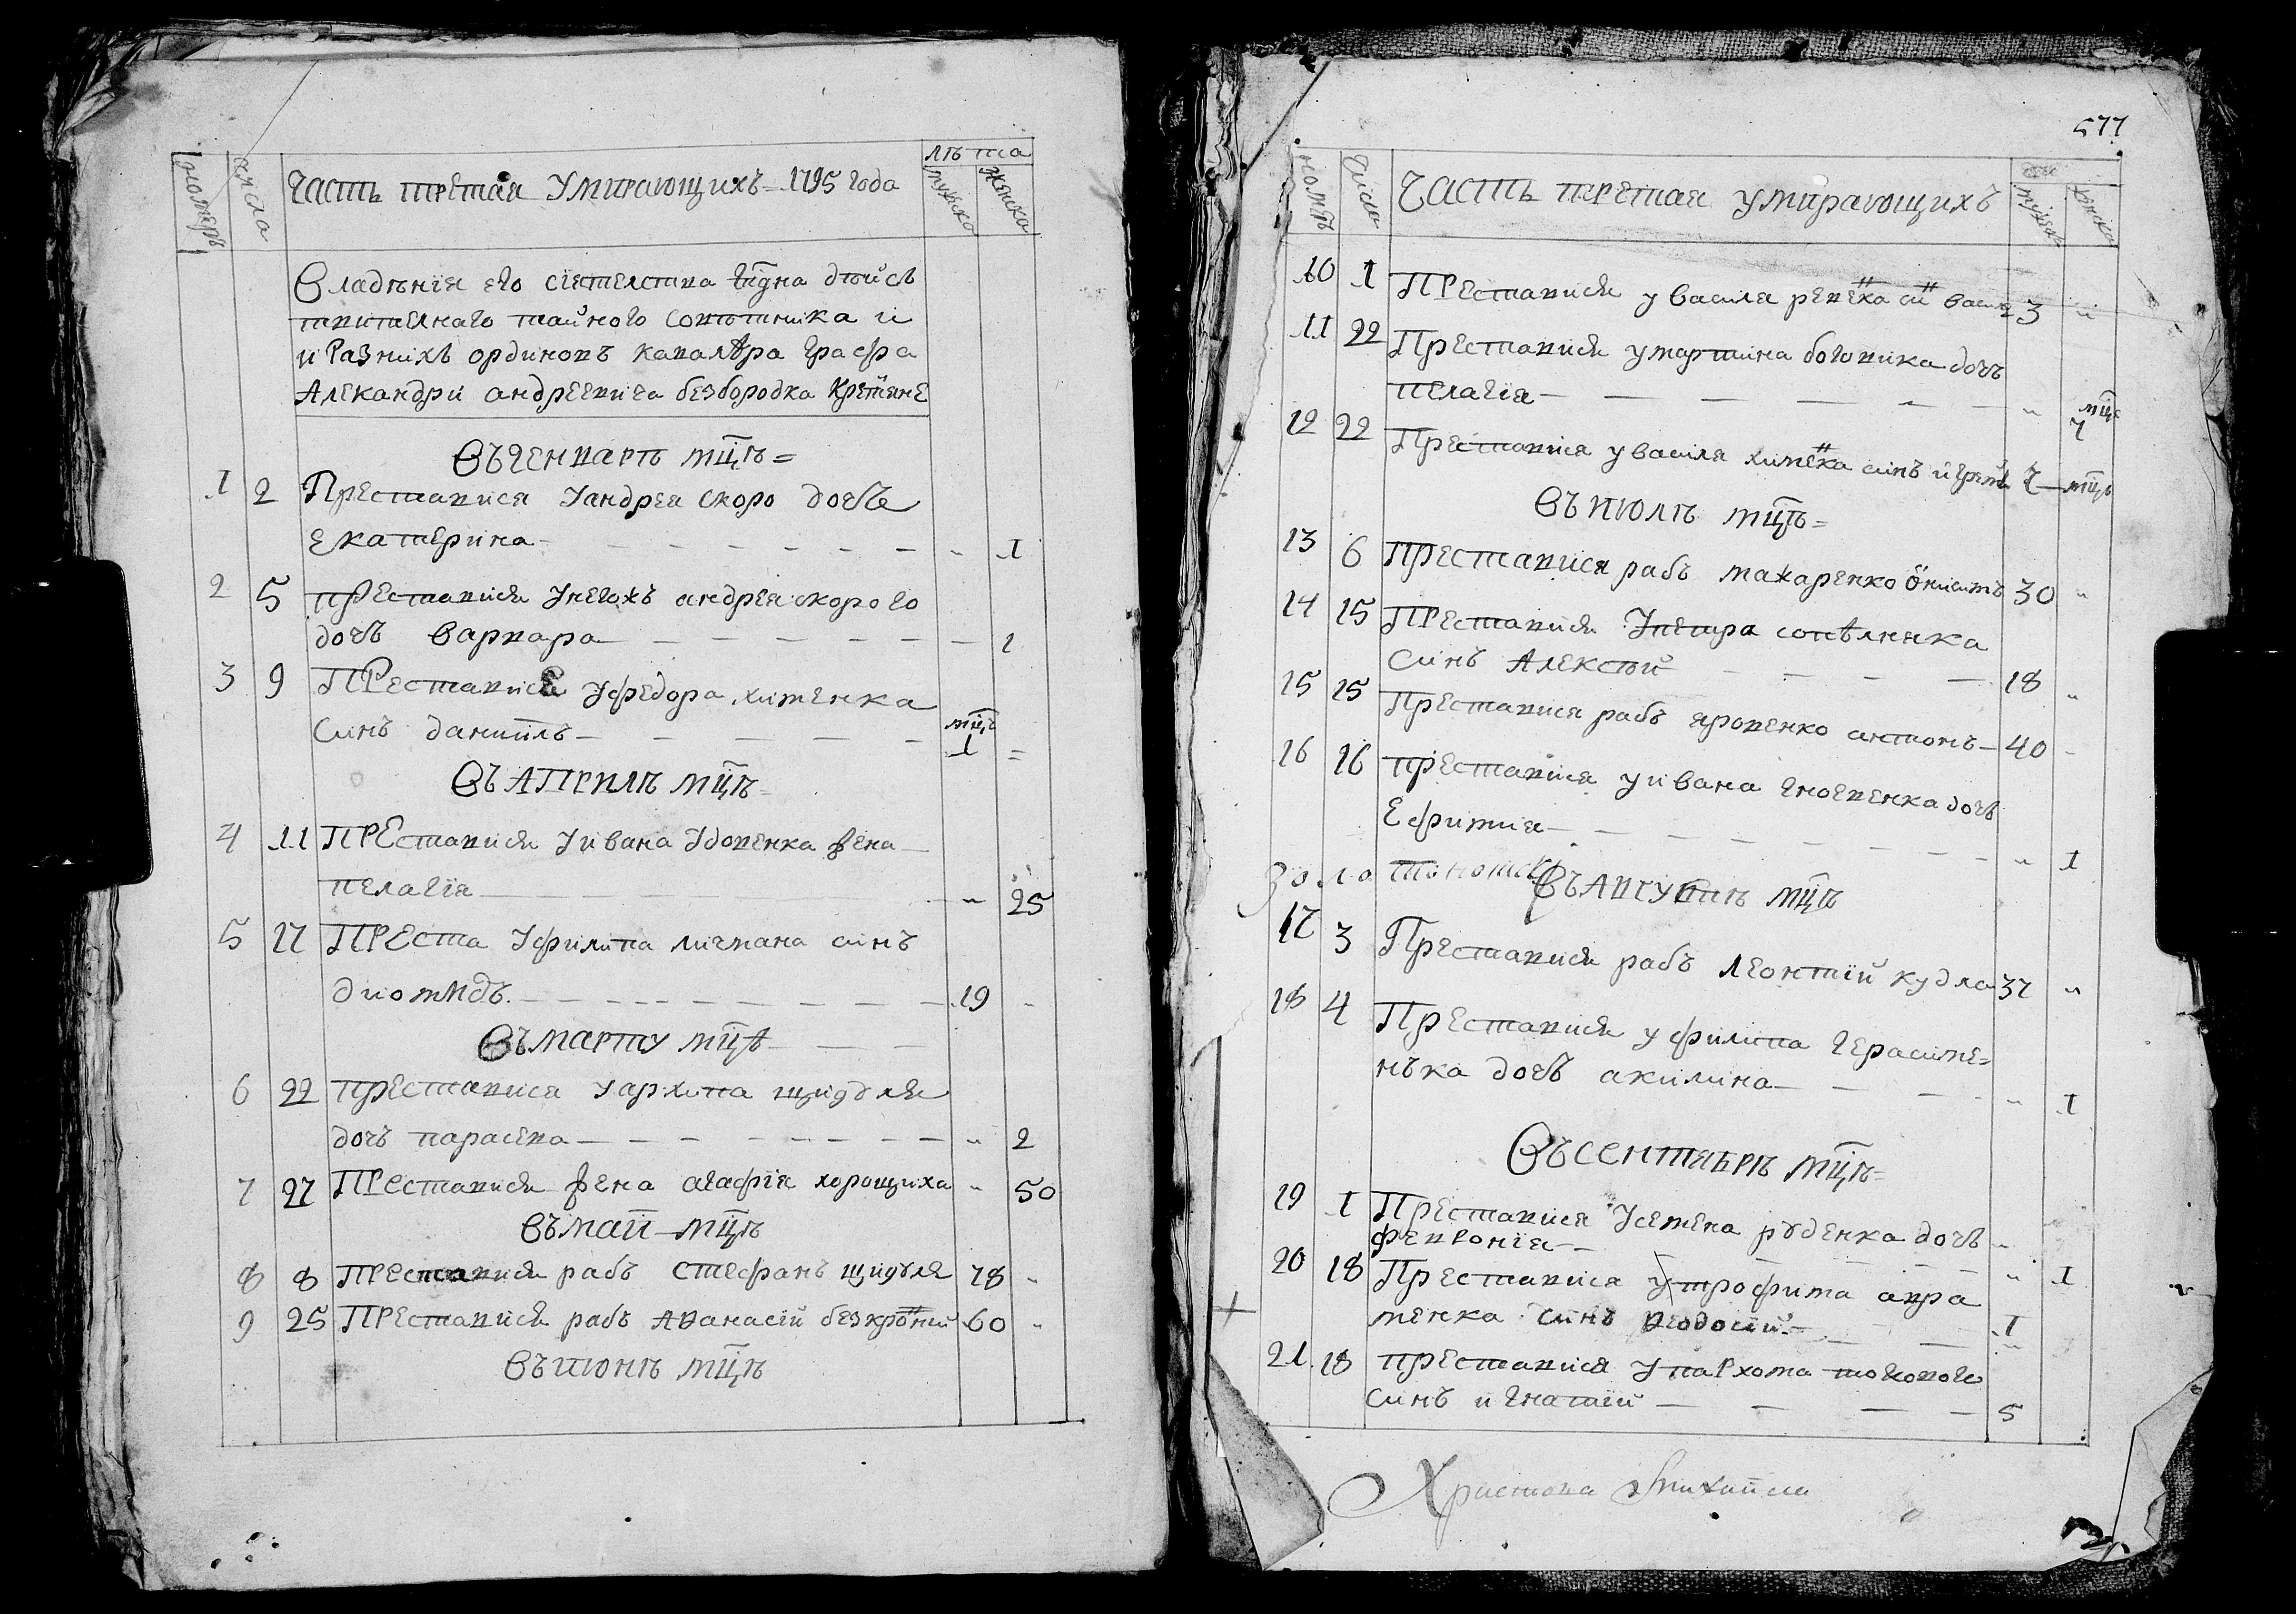 номеръ
числа
Часть третая Умирающихъ = 1795 года
лѣта
мужска
женска
Владѣнія его сіятелства гдна дѣйсъ
твителнаго тайного совѣтника и
и Разнихъ ординовъ кавалѣра Графа
Алекандри андреевича безбородка Крстяне
Въ Генварѣ мцѣ =
1 2 Преставися Уандреа скоро дочъ
екатерина - - - - - - - „ 1
2 5 преставися Унегожъ андреа скорого
дочъ Варвара - - - - - - 1
3 9 Преставися Уфедора хименка
синъ даниилъ - - - - - мцъ 1 =
Въ Априлѣ мцѣ =
4 11 Преставися Уивана Удовенка жена
пелагія „ 25
5 17 Преста Уфилипа личмана синъ
диомидъ - - - - - - - 19 „
Въ марту мцѣ
6 22 преставися Уархипа щидуля
дочъ парасева - - - - - - - „ 2
7 27 Преставися жена агафія хорощиха „ 50
Въ маи мцѣ
8 8 Преставися рабъ стефанъ щидуля 78 „
9 25 Преставися рабъ Аѳанасіи безкровни 60 „
Въ июнѣ мцѣ
577
номѣръ
числа
Часть третая умирающихъ
мужска
женска
10 1 Преставися у Василя репека си 3 „
11 22 Преставися умартина боговика дочъ
пелагія - - - - - - „ мцъ 7
12 22 Преставися у василя химека синъ 7 мцъ
Въ июлѣ мцѣ =
13 6 Преставися рабъ макаренко 30 „
14 15 Преставися Упетра сопѣлника
Синъ Алексѣй - - - 18 „
15 15 Преставися рабъ яровенко антонъ - 40 -
16 16 преставися у ивана гноевенка дочъ
Ефимия - - - - - - - „ 1
Золотоноск
Въ Августѣ мцѣ
17 3 Преставися рабъ леонтій кудла 37 „
18 4 Преставися у филипа герасиме=
нъка дочъ акилина - - - „ 1
Въ сентябрѣ мцѣ =
19 1 Преставися Усемена руденка дочъ
Февронія - - - - - „ 1
20 18 Преставися утрофима авра
менка синъ ѳеодосий - - - 1 „
21 18 преставися у пархома
Синъ игнатий - - - - 5
Христова Михаила